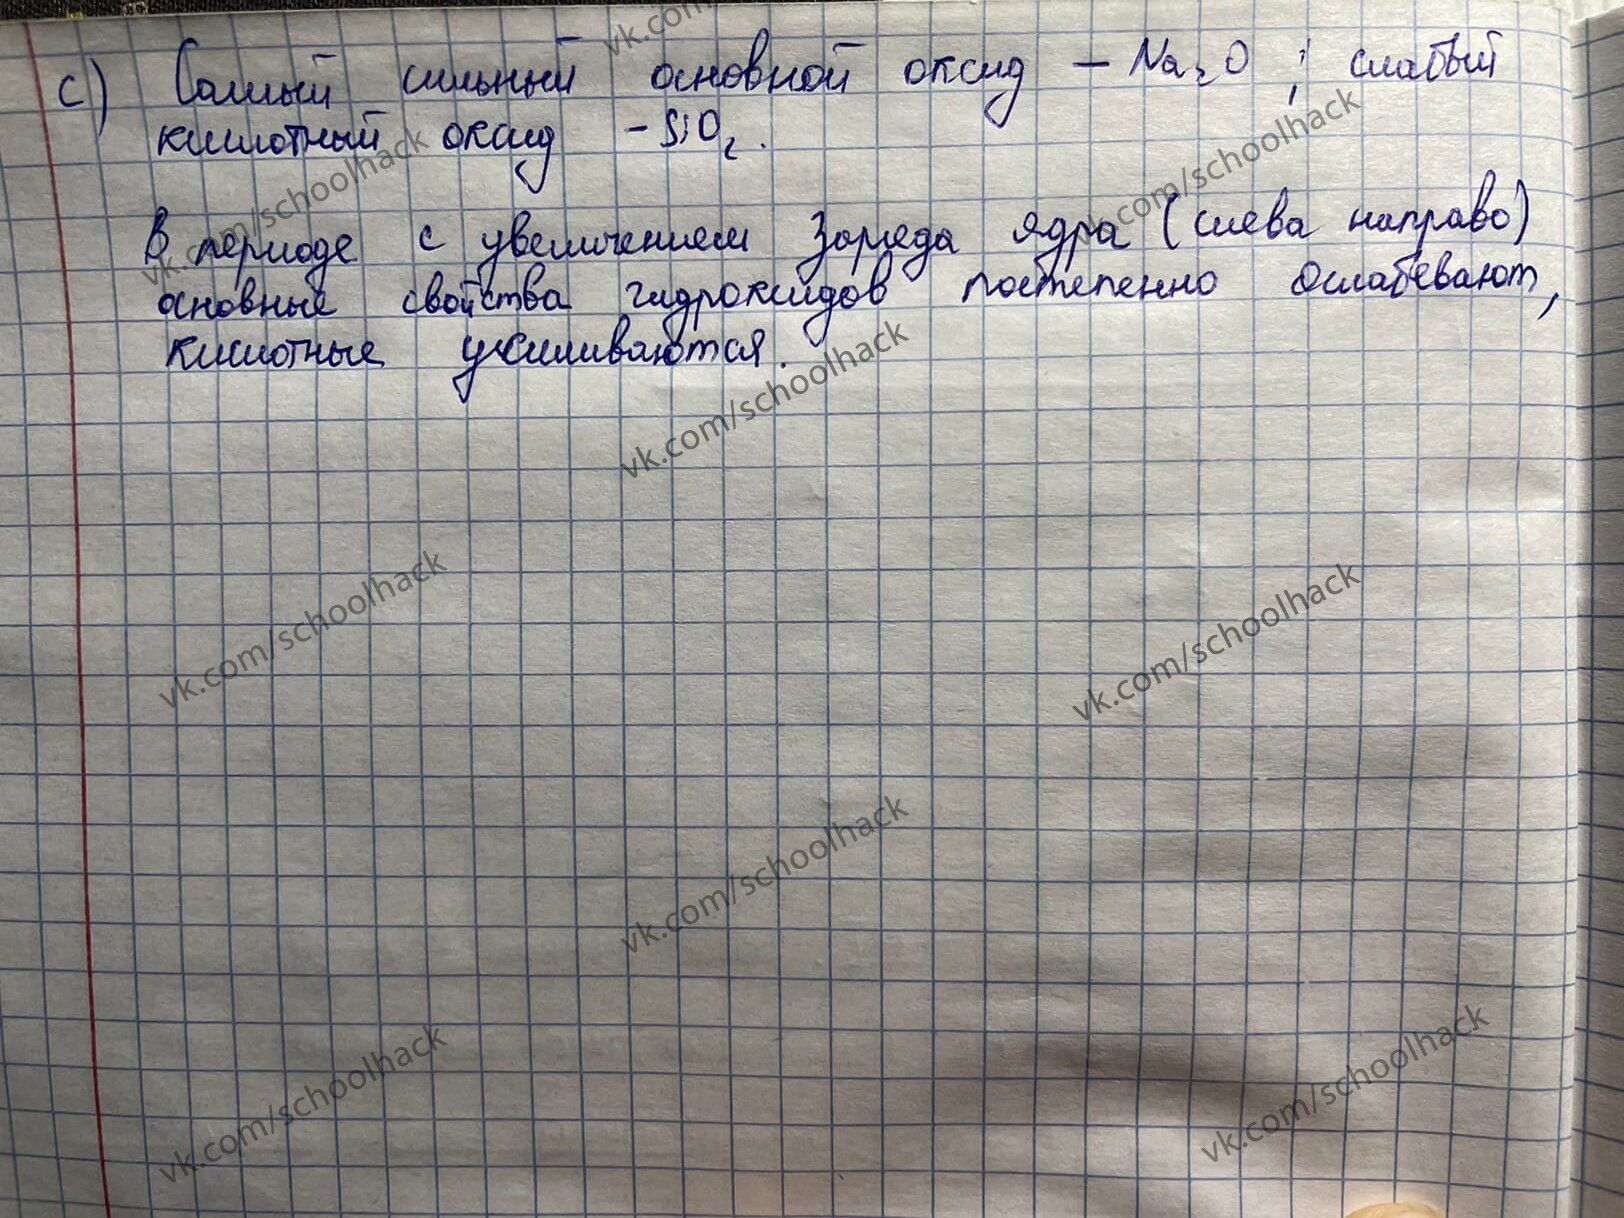 vk.com
с) Самый сильный основной оксид – Na₂O ; слабый
кислотный оксид – SiO₂.
В периоде с увеличением заряда ядра (слева направо)
основные свойства гидроксидов постепенно ослабевают,
кислотные усиливаются.
vk.com/schoolhack
vk.com/schoolhack
vk.com/schoolhack
vk.com/schoolhack
vk.com/schoolhack
vk.com/schoolhack
vk.com/schoolhack
vk.com/schoolhack